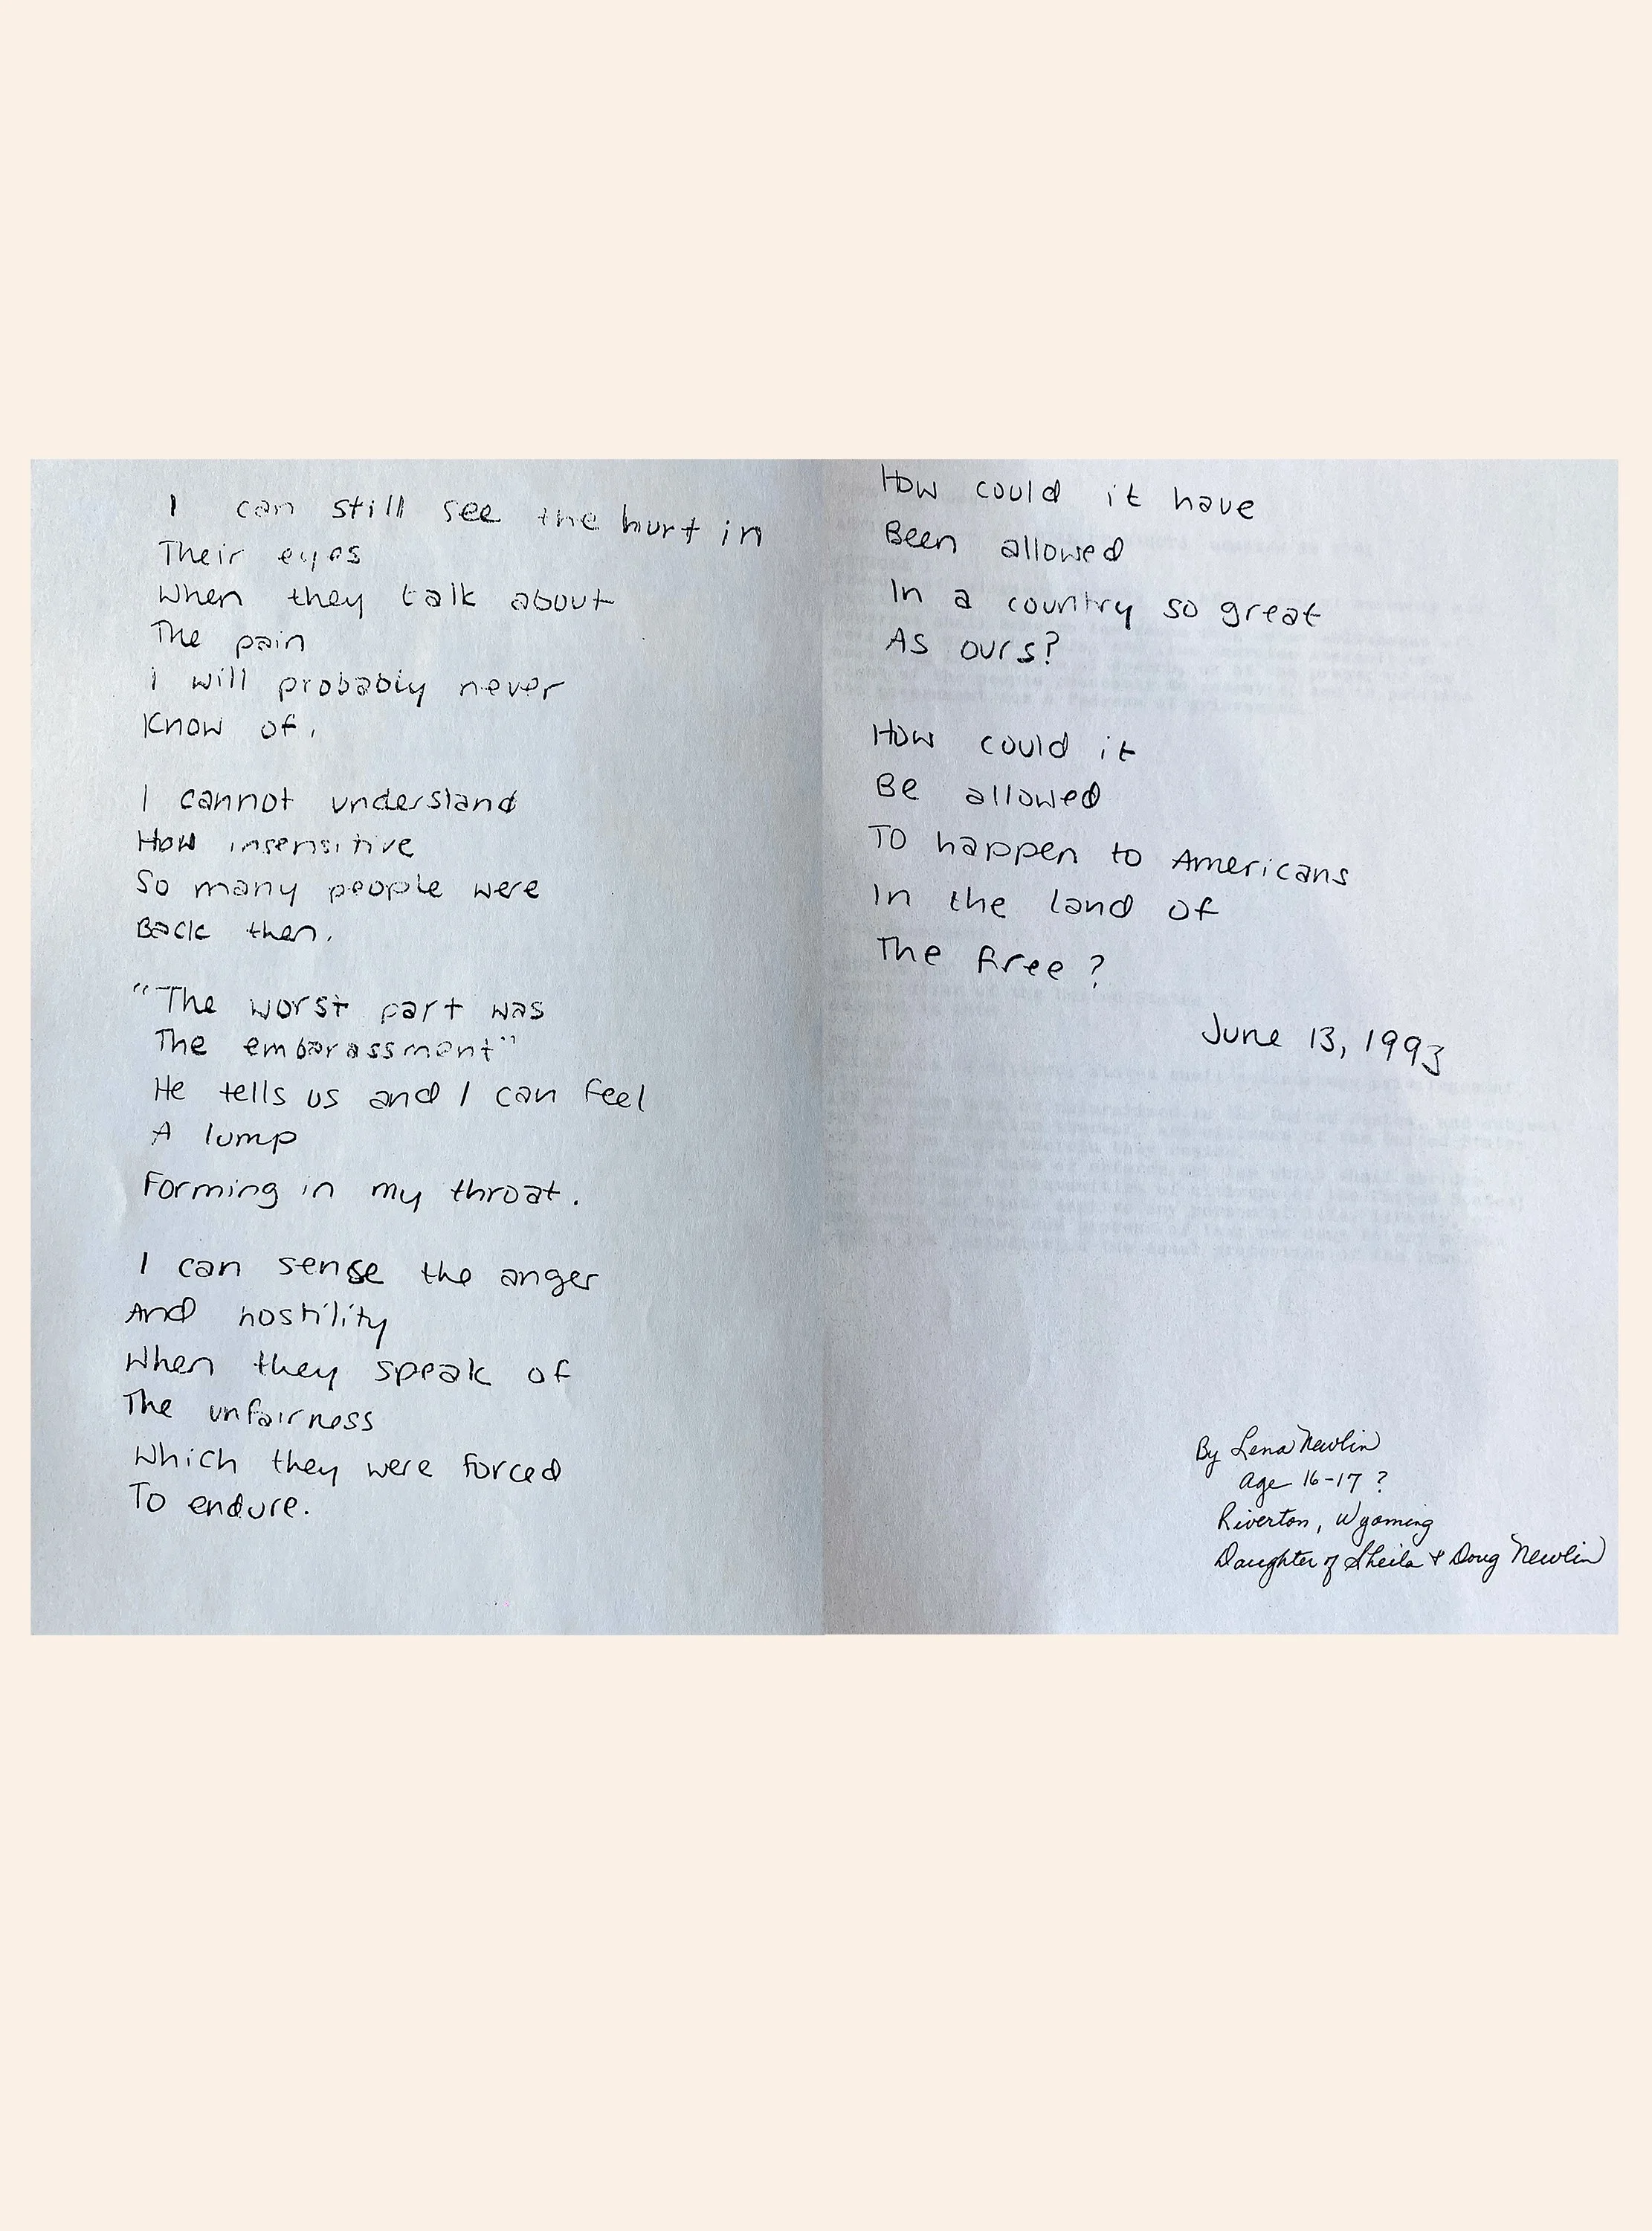 I can still see the hurt in
Their eyes
When they talk about
The pain
I will probably never
Know of.
I cannot understand
How insensitive
So many people were
Back then.
"The worst part was
The embarassment"
He tells us and I can feel
A lump
Forming in my throat.
I can sense the anger
And hostility
When they speak of
The unfairness
Which they were forced
To endure.
How could it have
Been allowed
In a country so great
As ours?
How could it
Be allowed
To happen to Americans
In the land of
The free?
June 13, 1993
By Lena Newlin
Age 16-17 ?
Riverton, Wyoming
Daughter of Sheila & Doug Newlin